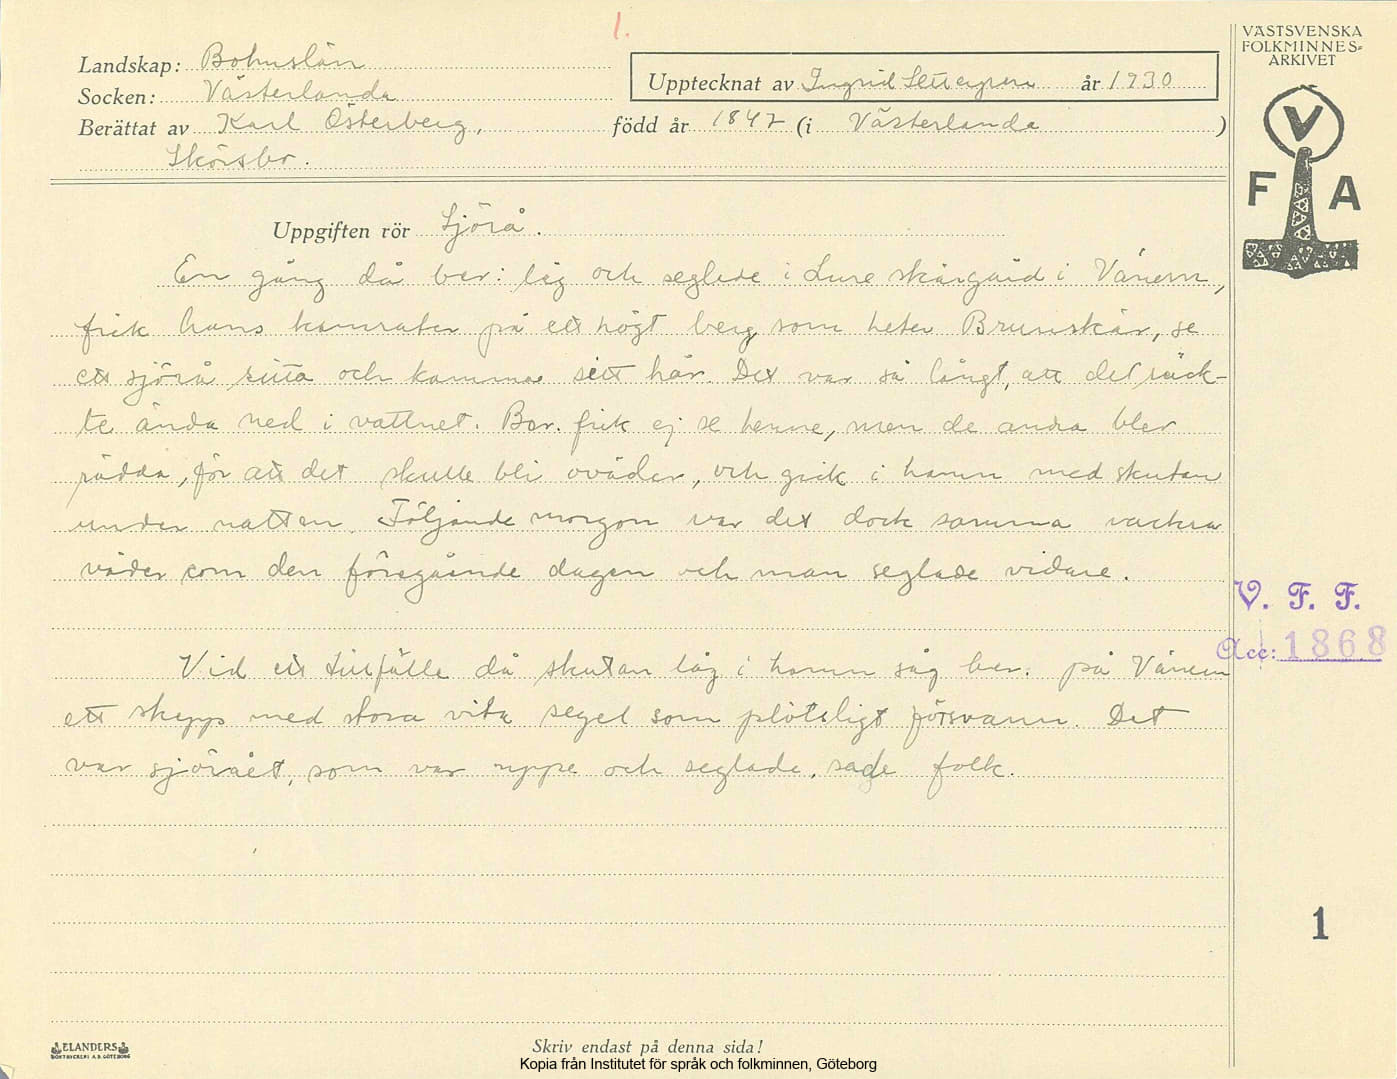 1.
VÄSTSVENSKA
FOLKMINNES=
ARKIVET
V
F A
Landskap: Bohuslän
Socken: Västerlanda
Upptecknat av Ingrid år 1930
Berättat av Karl Österberg, född år 1847 (i Västerlanda )
Uppgiften rör Sjörå.
En gång då ber: låg och seglade i Lure skärgård i Vänern,
fick hans kamrater på ett högt berg som heter Brunskär, se
ett sjörå sitta och kamma sitt hår. Det var så långt, att det räck-
te ända ned i vattnet. Ber. fick ej se henne, men de andra blev
rädda, för att det skulle bli oväder, och gick i hamn med skutan
under natten. Följande morgon var det dock samma vackra
väder som den föregående dagen och man seglade vidare.
Vid ett tillfälle då skutan låg i hamn såg ber. på Vänern
ett skepp med stora vita segel som plötsligt försvann. Det
var sjörået, som var uppe och seglade, sade folk.
V. F. F.
Acc: 1868
1
ELANDERS
BOKTRYCKERI A.B. GÖTEBORG
Skriv endast på denna sida!
Kopia från Institutet för språk och folkminnen, Göteborg